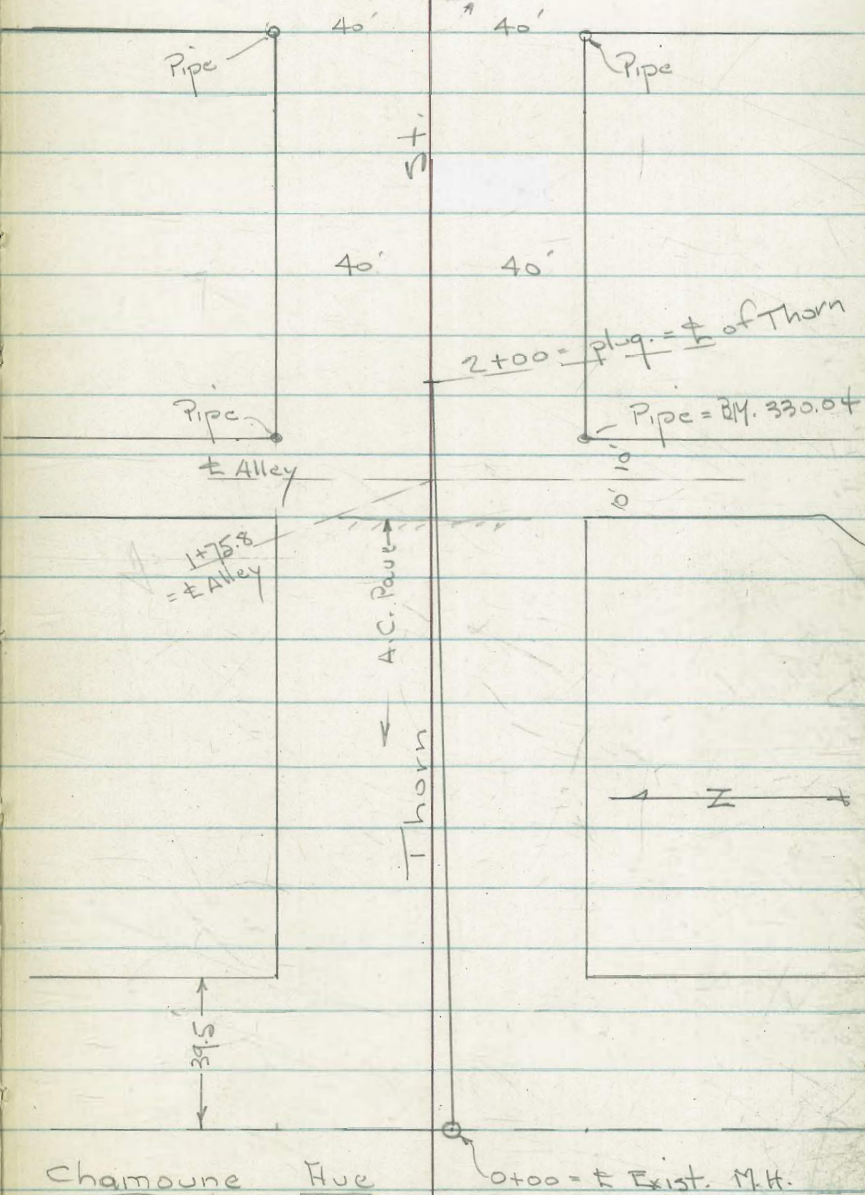 40' 40'
Pipe Pipe
St.
40' 40'
2+00 = plug = ℄ of Thorn
Pipe Pipe = BM. 330.04
℄ Alley 10' 10'
1+75.8
= ℄ Alley
A.C. Pave
Thorn
N
39.5'
Chamoune Ave 0+00 = ℄ Exist. M.H.